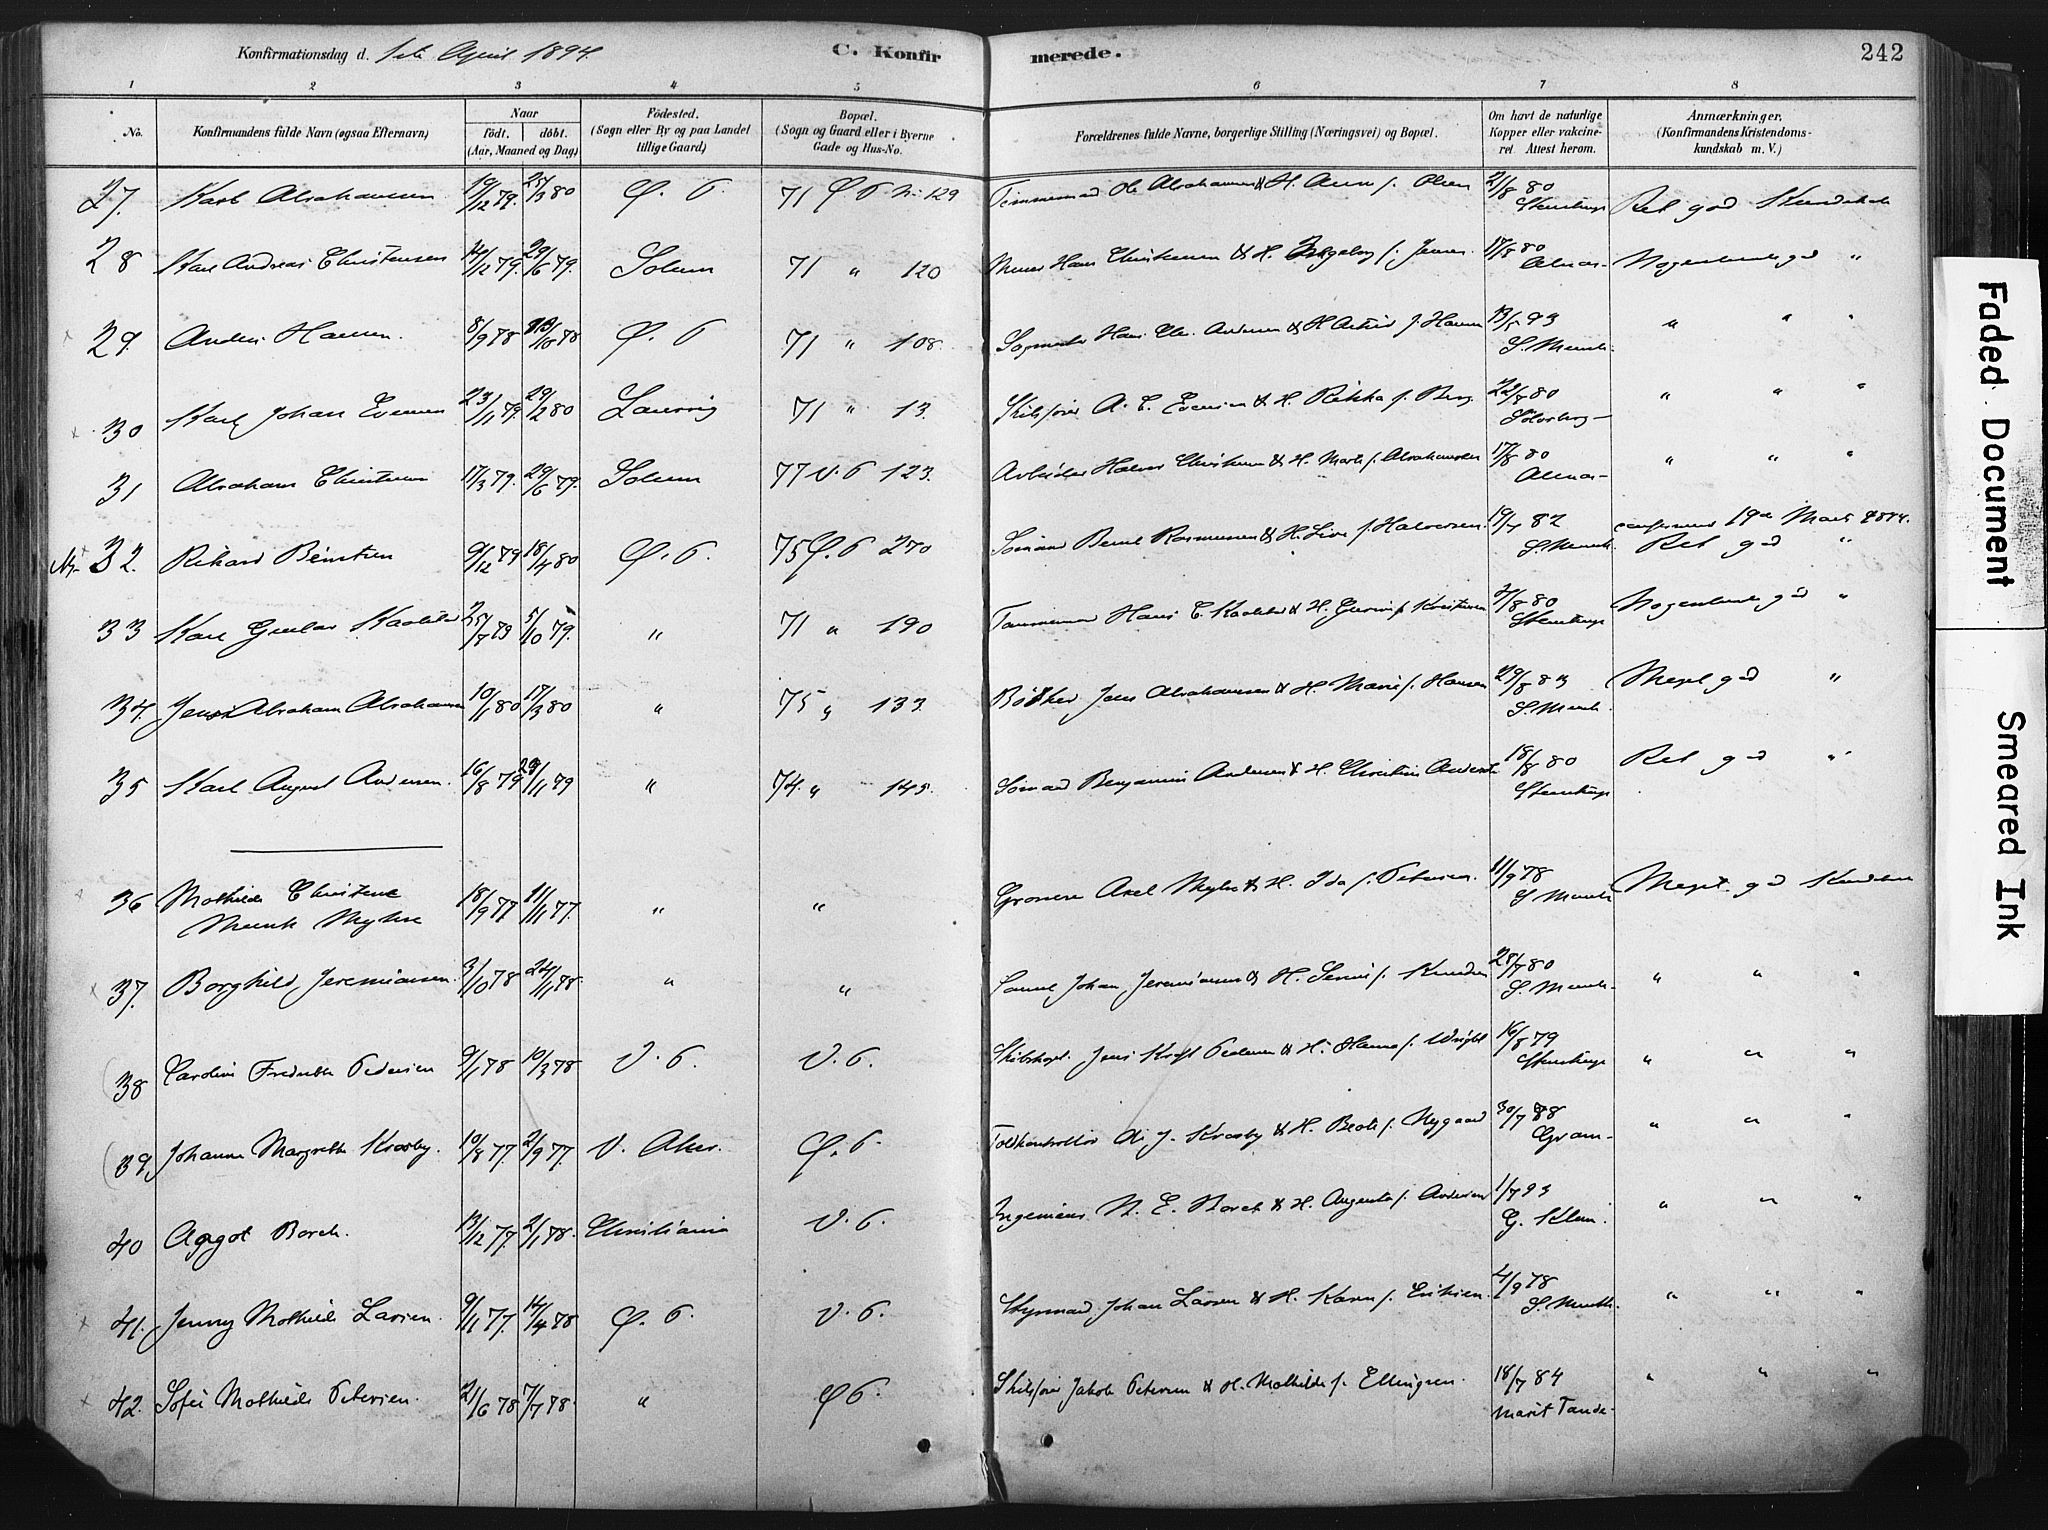 Konfirmationsdag d. 1ste April 1894.
C. Konfirmerede.
242
1 2 3 4 5 6 7 8
No.
Konfirmandens fulde Navn (ogsaa Efternavn)
Naar
født. døbt.
(Aar, Maaned og Dag)
Fødested.
(Sogn eller By og paa Landet
tillige Gaard)
Bopæl.
(Sogn og Gaard eller i Byerne
Gade og Hus-No.
Forældrenes fulde Navne, borgerlige Stilling (Næringsvei) og Bopæl.
Om havt de naturlige
Kopper eller vakcine-
ret Attest herom.
Anmærkninger.
(Konfirmandens Kristendoms-
kundskab m. V.)
27. Karl Abrahamsen 19/12 79. 80 Ø. P. 71 Ø. P. N. 129 Tømmermand Ole Abrahamsen & H. Anne f. Olsen 21/8 80 Ret god Kundskab
28 Karl Andreas Christensen 79. 29/6 79. Solum 71 " 120 Murer Hans Christensen & H. Ingeborg f. Jensen 17/8 80 Nogenlunde god "
29. Anders Hansen. 8/9 78 78 Ø. P. 71 " 108. Hans Chr. Andersen & H. Astrid f. Hansen 13/5 93 S. Munch. " " "
30 Karl Johan Evensen 23/11 79. 29/2 80 Laurvig 71 " 13. Skibsfører A. C. Evensen & H. Rikka f. Berg 22/8 80 " " "
31 Abraham Christensen 17/3 79. 29/6 79. Solum 77 V. P. 123. Arbeider Halvor Christensen & H. Marte f. Abrahamsen 17/8 80 " " "
32. Rikard Berntsen 9/12 79 18/4 80 Ø. P. 75 Ø. P. 270 Sømand Bernt Rasmussen & H. Live f. Halvorsen. 82 S. Munch. confirmeret 19de Marts 1894. Ret god "
33 Karl Gustav 25/7 79 5/10 79. " 71 " 190 Tømmermand Hans C. & H. f. Kristensen 80 Nogenlunde god "
34. Jens Abraham Abrahamsen 10/1 80 17/3 80 " 75 " 133. Bødker Jens Abrahamsen & H. Marie f. Hansen 29/8 83 S. Munch. Meget god "
35 Karl August Andersen. 16/8 79 /11 79 " 74. " 145. Sømand Benjamin Andersen & H. Christine Andersen 18/8 80 Ret god "
36 Mathilde Christence
Munk Myhre 18/9 77 11/11 77. " " Grosserer Axel Myhre & H. Ida f. Petersen. 11/9 78 S. Munch Meget god Kundskab
37. Borghild Jeremiasen. 3/10 78 24/11 78. " " Johan Jeremiasen & H. f. Knudsen 28/7 80 S. Munch. " " "
38 Caroline Fredrikke Pedersen 9/1 78 10/3 78 V. P. V. P. Skibskapt. Jens Kraft Pedersen & H. Hanna f. Wright 16/8 79 " " "
39. Johanne Margrethe Krosby. 10/8 77. 2/9 77. V. Aker. Ø. P. Toldkontrollør J. Krosby & H. f. Nygaard 30/7 88 Gram. " " "
40 Aagot Borch. 13/12 77. 2/1 78. Christiania V. P. Ingeniør N. E. Borch & H. Augusta f. Andersen 1/7 93 G. " " "
41. Jenny Mathilde Larsen. 9/11 77. 14/4 78 Ø. P. V. P. Styrmand Johan Larsen & H. Karen f. Eriksen. 4/9 78 S. Munch. " " "
42. Sofie Mathilde Petersen. 21/6 78 7/7 78. " Ø. P. Skibsfører Jakob Petersen & H. Mathilde f. Ellingsen. 18/7 84 Marit Tande. " " "
Faded Document
Smeared Ink